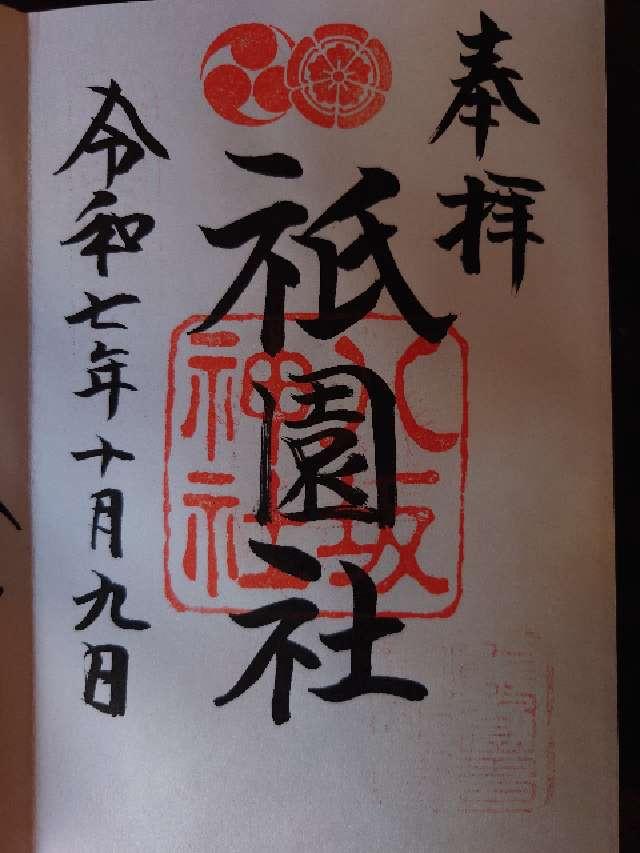 奉拝
祇園社
八坂
神社
令和七年十月九日